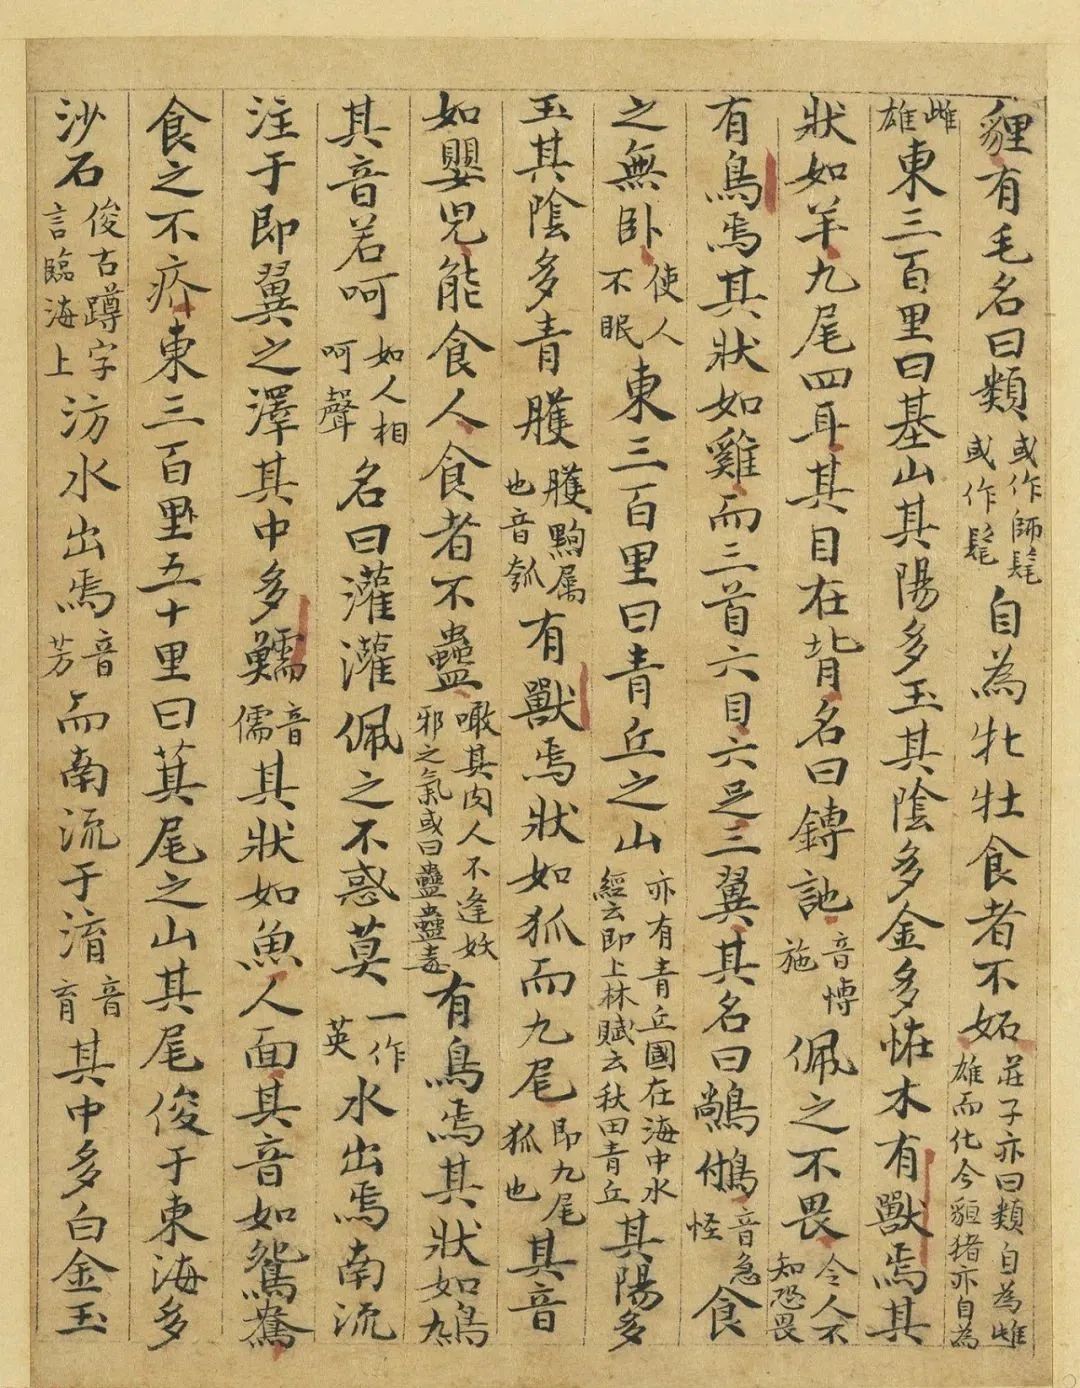 貍有毛名曰類或作師髦或作髦自為牝牡食者不妬莊子亦曰類自為雌雄而化今貆猪亦自為
雌雄東三百里曰基山其陽多玉其陰多金多怪木有獸焉其
狀如羊九尾四耳其目在背名曰鏄訑音博施佩之不畏令人不知恐畏
有鳥焉其狀如雞而三首六目六足三翼其名曰鵂音急怪食
之無卧使人不眠東三百里曰青丘之山亦有青丘國在海中水經云即上林賦云秋田青丘其陽多
玉其陰多青䨼䨼黝属也音瓠有獸焉狀如狐而九尾即九尾狐也其音
如嬰兒能食人食者不蠱噉其肉人不逢妖邪之氣或曰蠱蠱毒有鳥焉其狀如鳩
其音若呵如人相呵聲名曰灌灌佩之不惑莫一作英水出焉南流
注于即翼之澤其中多鱬音儒其狀如魚人面其音如鴛鴦
食之不疥東三百里五十里曰萁尾之山其尾俊于東海多
沙石俊古蹲字言臨海上汸水出焉音芳而南流于淯音育其中多白金玉